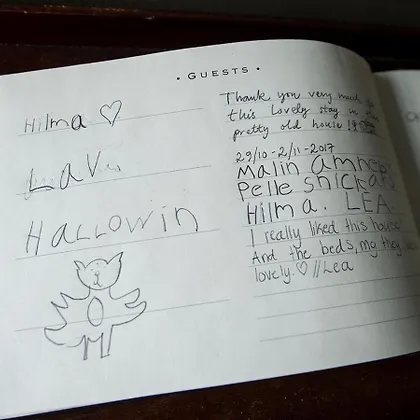 • GUESTS •
Hilma ♡
LaV
HALLOWIN
Thank you very much
this lovely stay in
pretty old house !
29/10-2/11-2017
Malin
Pelle
Hilma. LEA
I really liked this house
And the beds, they
lovely. ♡ //Lea